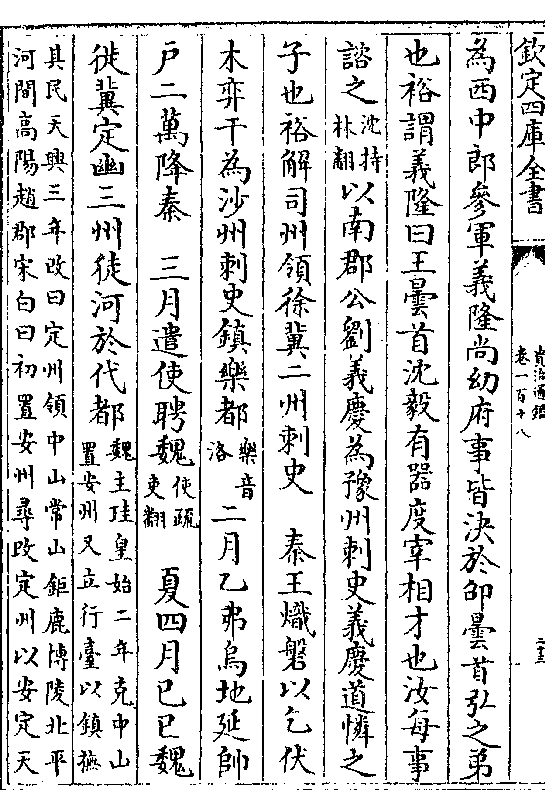 欽定四庫全書
資治通鑑
卷一百十八
二十三
為西中郎參軍義隆尚幼府事皆決於邵曇首弘之弟
也裕謂義隆曰王曇首沈毅有器度宰相才也汝每事
諮之沈持林翻以南郡公劉義慶為豫州刺史義慶道憐之
子也裕解司州領徐冀二州刺史 秦王熾磐以乞伏
木弈干為沙州刺史鎮樂都樂音洛二月乙弗烏地延帥
戶二萬降秦 三月遣使聘魏使疏吏翻 夏四月己巳魏
徙冀定幽三州徒河於代都魏主珪皇始二年克中山置安州又立行臺以鎮撫
其民天興三年改曰定州領中山常山鉅鹿博陵北平
河間高陽趙郡宋白曰初置安州尋改定州以安定天